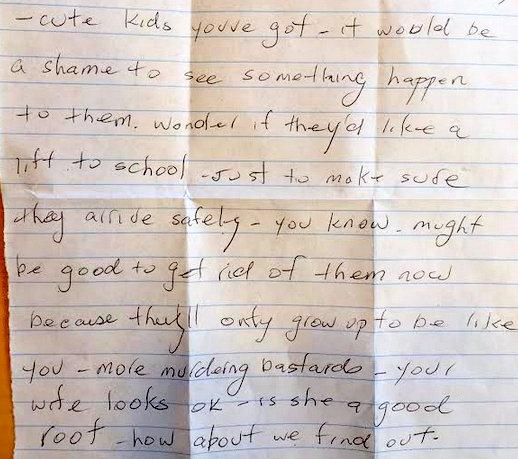 - cute kids youve got - it would be
a shame to see something happen
to them. wonder if they'd like a
lift to school - Just to make sure
they arrive safely - you know. might
be good to get rid of them now
because they'll only grow up to be like
you - more murdering bastards - your
wife looks ok - is she a good
root - how about we find out.